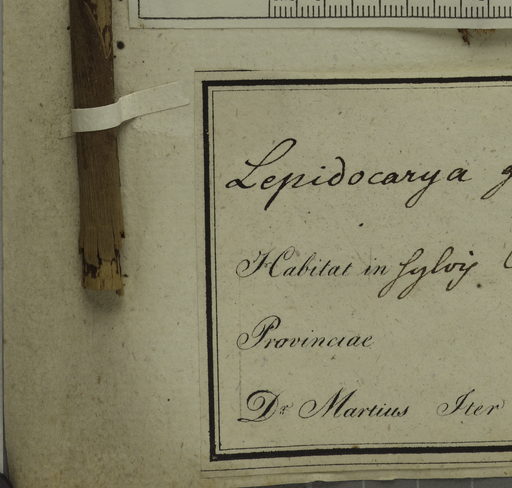 Lepidocarya g
Habitat in sylvis
Provinciae
Dr. Martius Iter